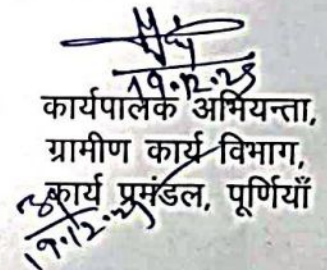 19.12.25
कार्यपालक अभियन्ता,
ग्रामीण कार्य विभाग,
कार्य प्रमंडल, पूर्णियाँ
19.12.25